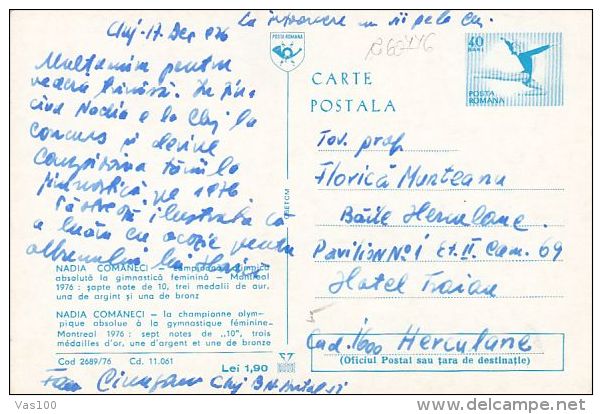 Cluj-17 Dec 976
La întoarcere vii pela Cluj
Mulțumim pentru
vederea trimisă. De
cînd Nadia e la Cluj la
concurs și devine
țării la
gimnastică pe 1976
Păstrează ilustrata că
a luăm cu ocazie pentru
albumul lui
POSTA ROMANA
CARTE
POSTALA
40
BANI
POSTA
ROMANA
Tov. prof
Florică Munteanu
Băile Herculane
Pavilion No 1 Et. II Cam. 69
Hotel Traian
Cod. 1600 Herculane
(Oficiul Postal sau țara de destinație)
NADIA COMĂNECI – campioană olimpică
absolută la gimnastică feminină – Montreal
1976 : șapte note de 10, trei medalii de aur,
una de argint și una de bronz
NADIA COMĂNECI – la championne olym-
pique absolue à la gymnastique féminine–
Montreal 1976 : sept notes de „10", trois
médailles d'or, une d'argent et une de bronze
Cod 2689/76 Cd. 11.061
Lei 1,90
Fam Cluj
Vas100
delcampe.net